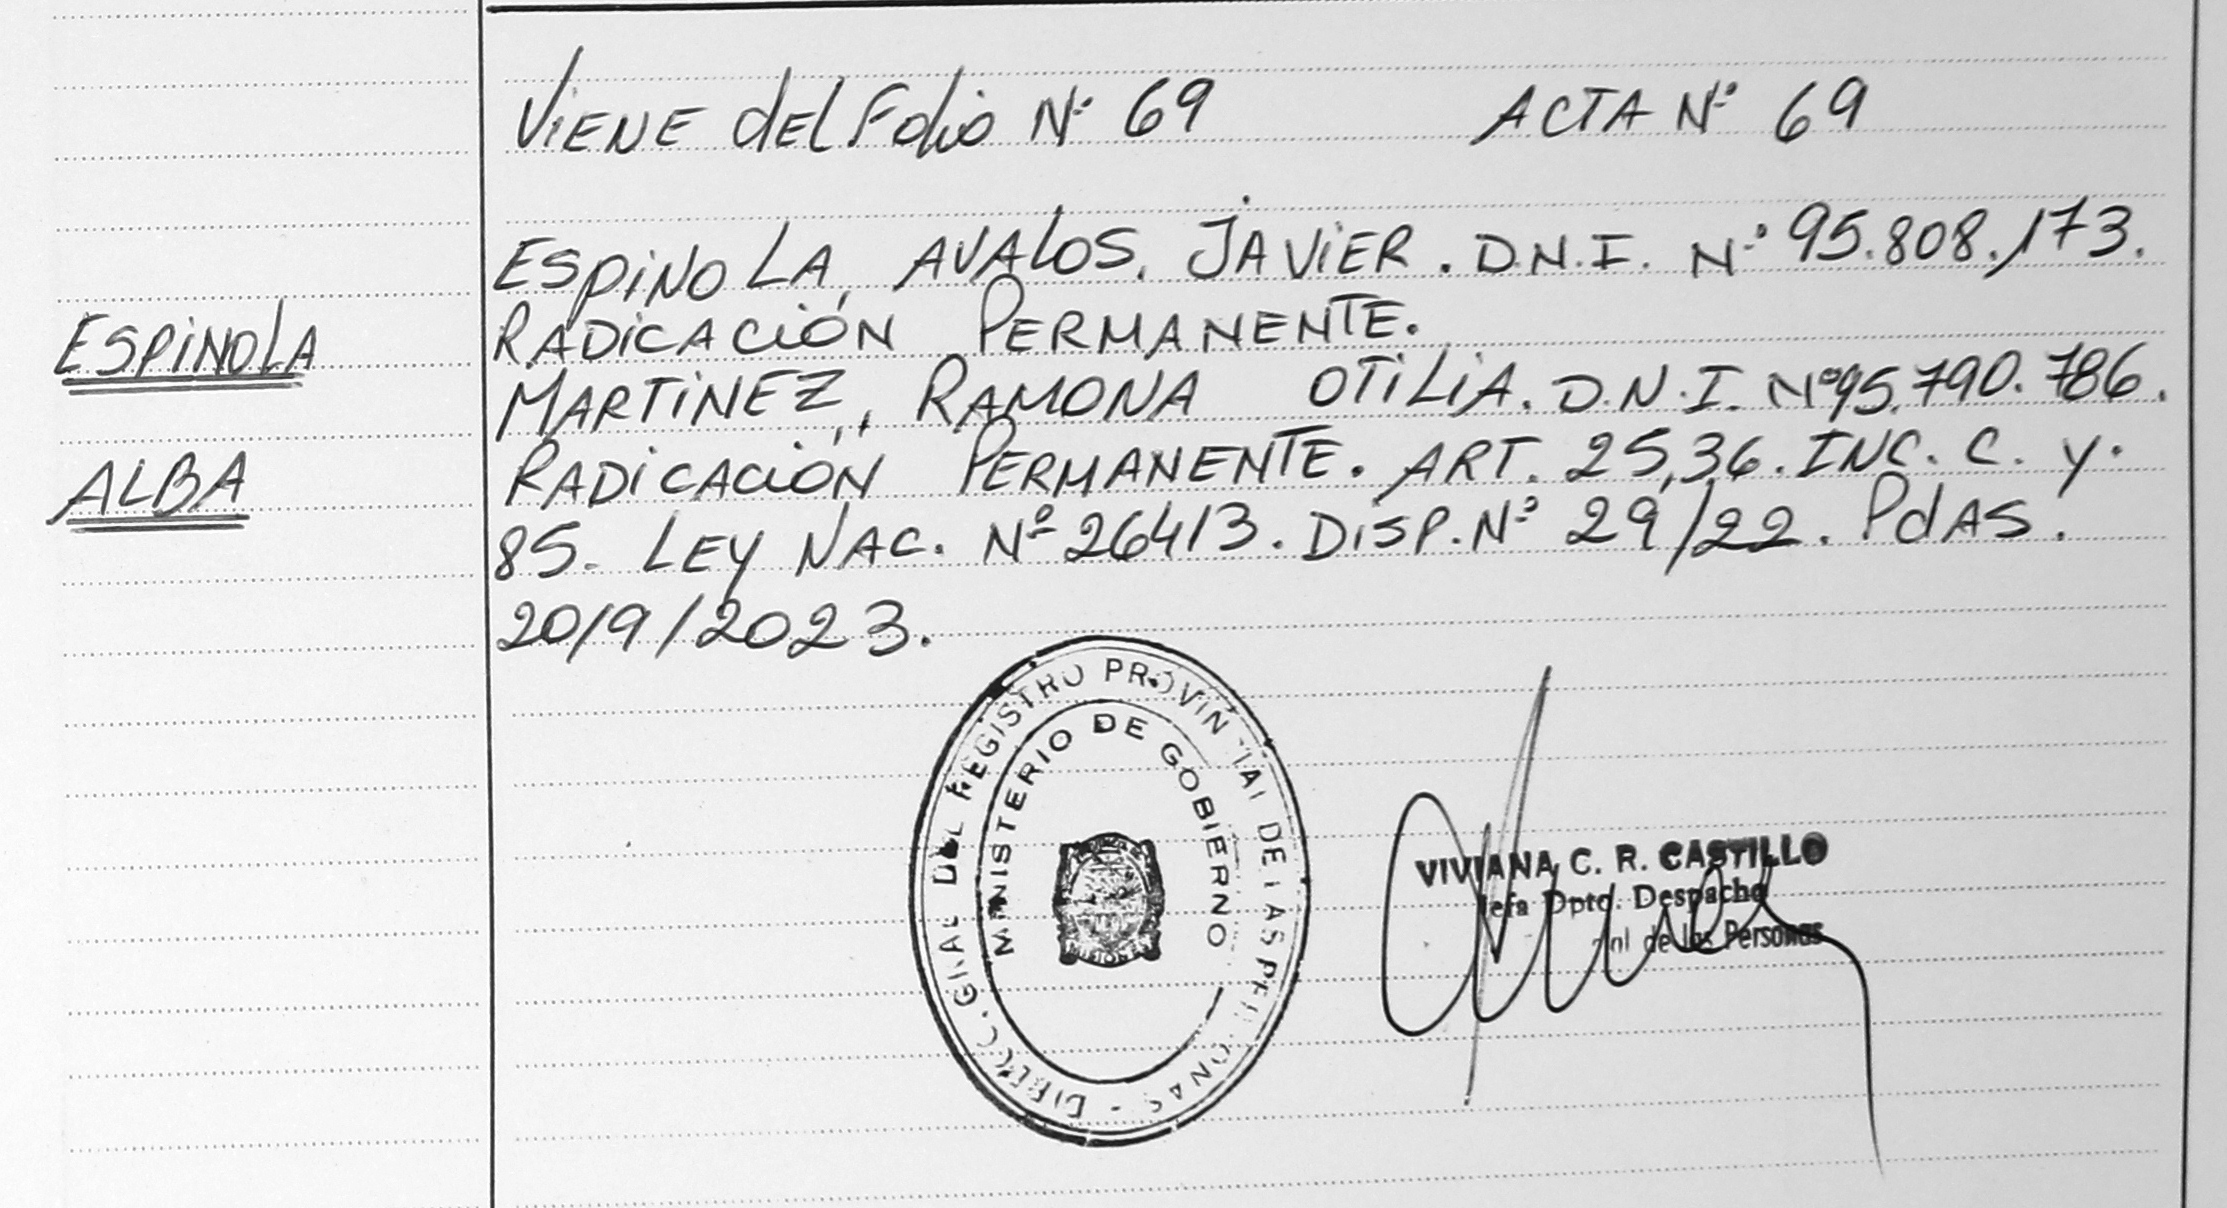 Viene del Folio Nº 69 ACTA Nº 69
ESPINOLA, AVALOS, JAVIER. D.N.I. Nº 95.808.173.
RADICACIÓN PERMANENTE.
MARTINEZ, RAMONA OTILIA. D.N.I. Nº 95.790.786.
RADICACIÓN PERMANENTE. ART. 25,36. INC. C. y.
85. LEY NAC. Nº 26413. DISP. Nº 29/22. PdAS.
20/9/2023.
ESPINOLA
ALBA
DIREC. GRAL DEL REGISTRO PROVINCIAL DE LAS PERSONAS -
MINISTERIO DE GOBIERNO
MISIONES
VIVIANA C. R. CASTILLO
Jefa Dpto. Despacho
de las Personas